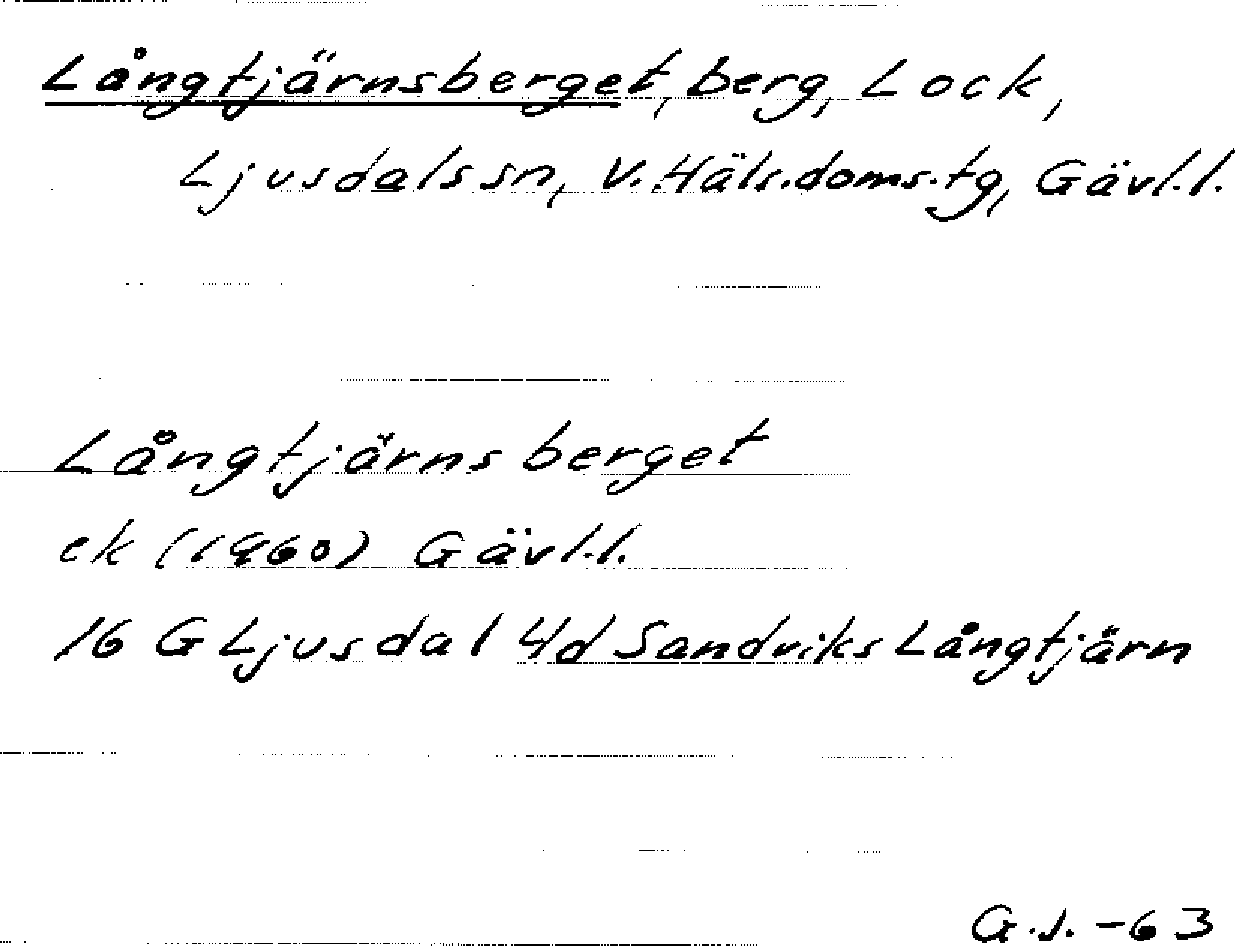 Långtjärnsberget, berg, Lock,
Ljusdals sn, V. Häls. doms. tg, Gävl.l.
Långtjärnsberget
ek (1960) Gävl.l.
16 G Ljusdal 4d Sandviks Långtjärn
G.J. -63